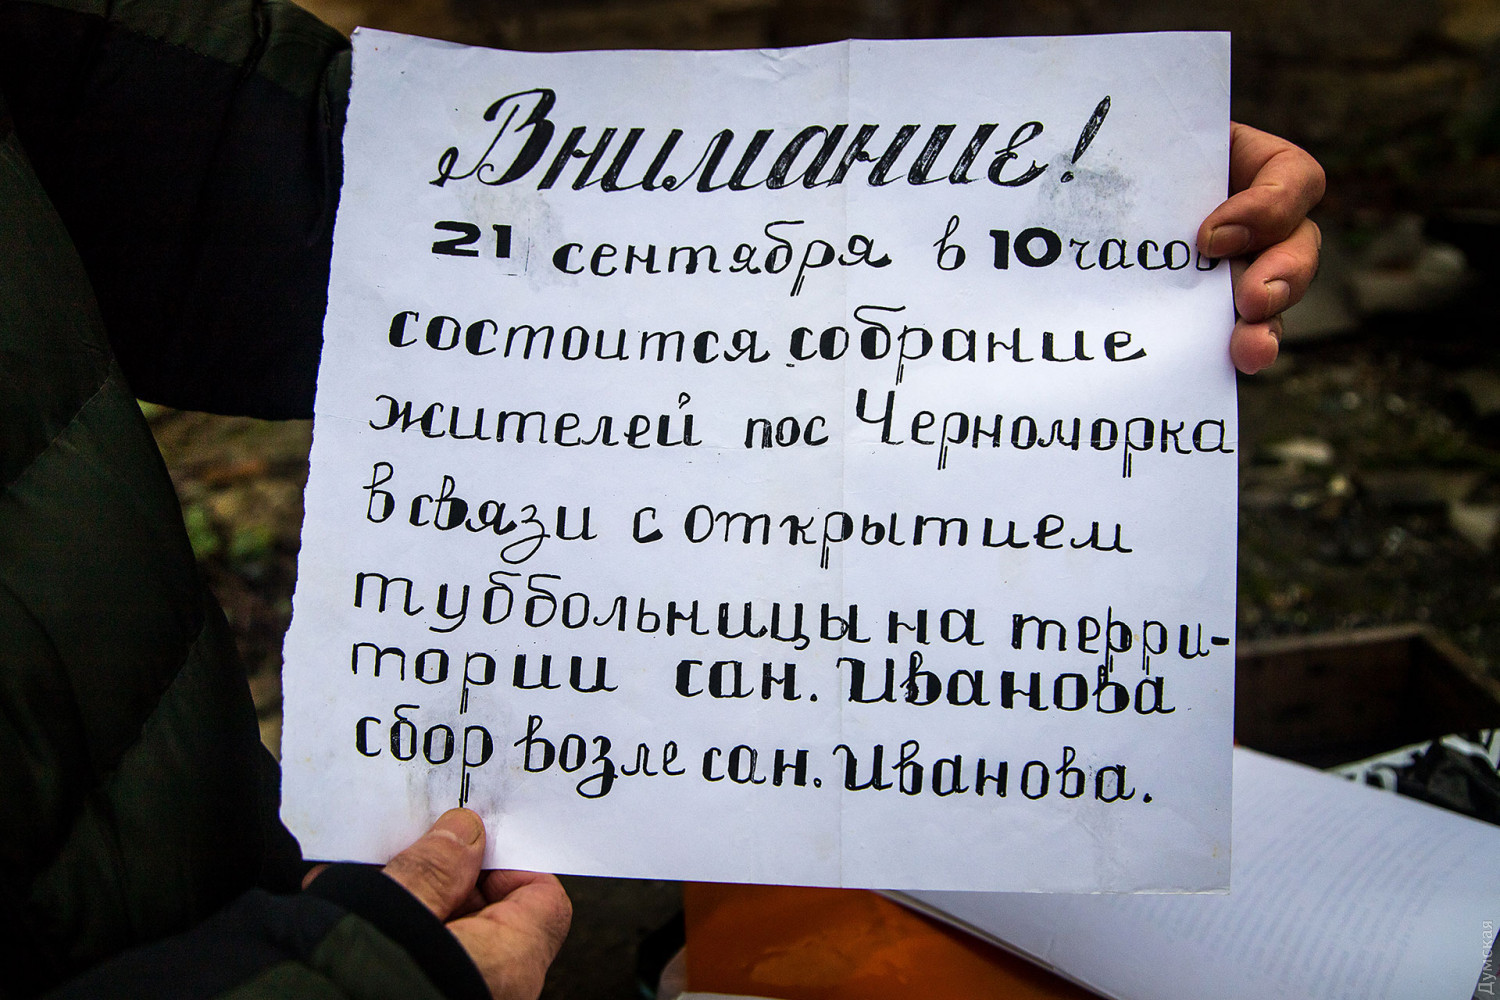 Внимание!
21 сентября в 10 часов
состоится собрание
жителей пос Черноморка
в связи с открытием
туббольницы на терри-
тории сан. Иванова
сбор возле сан. Иванова.
Думская